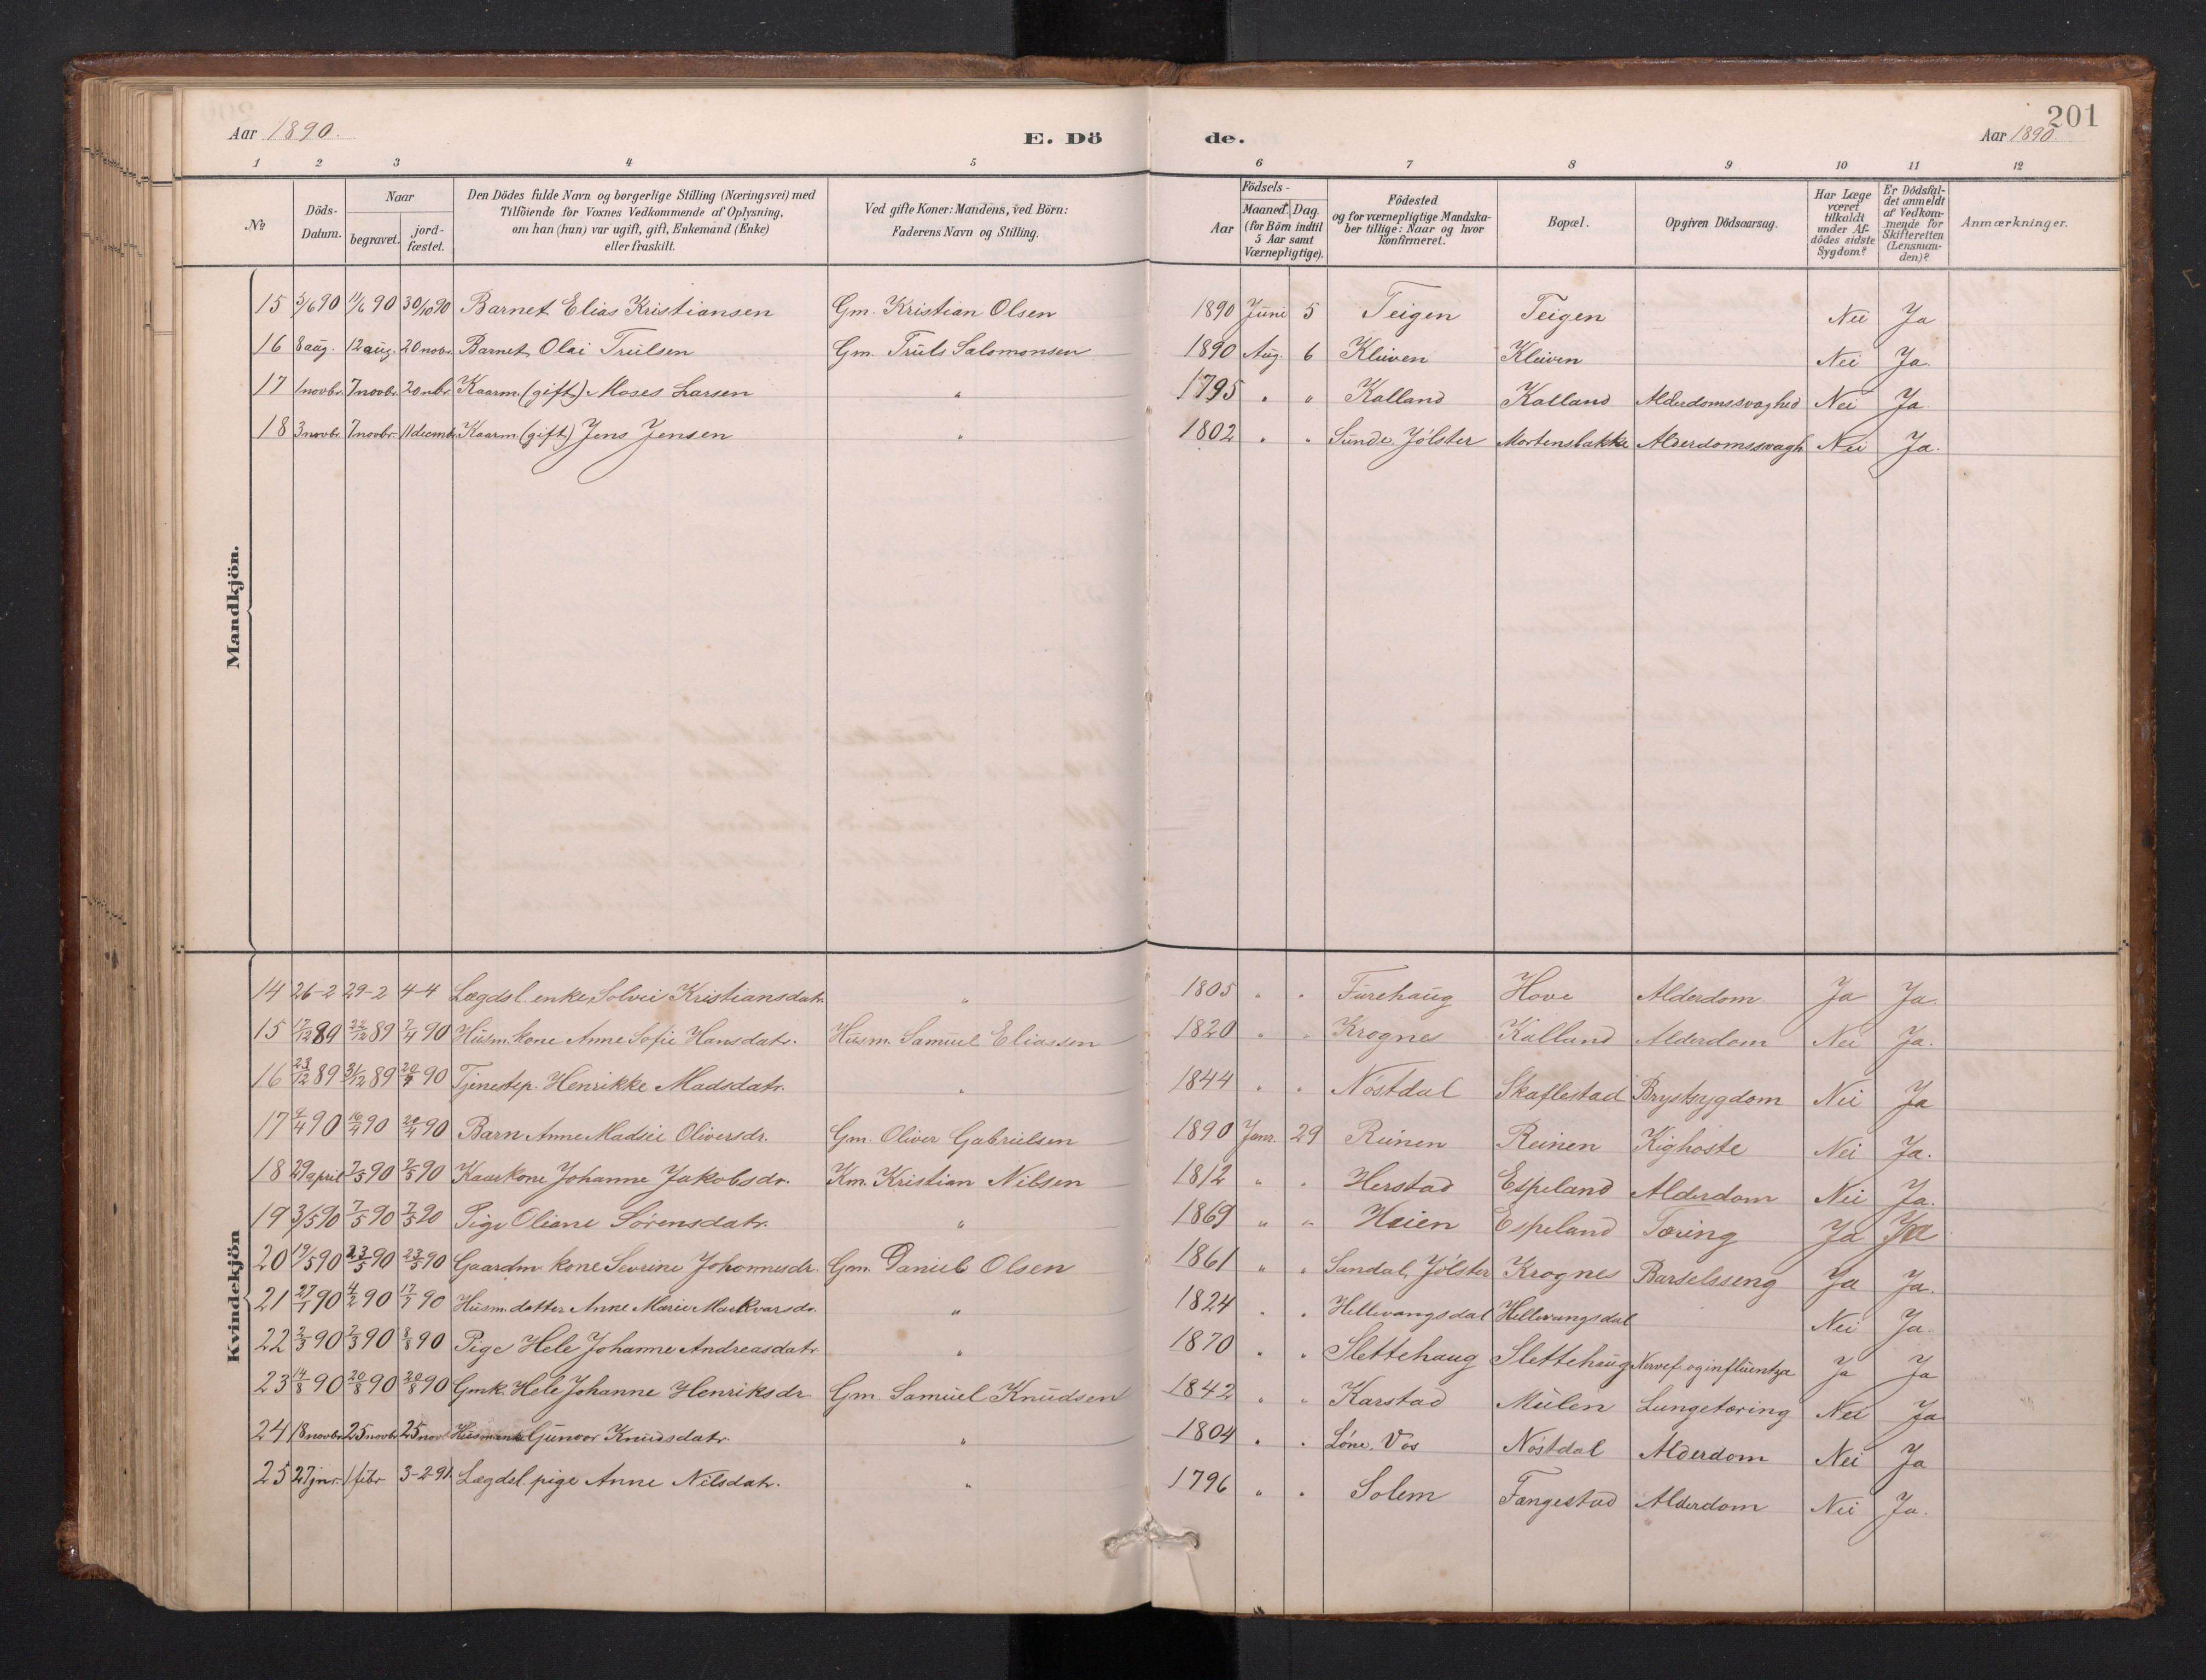 201
Aar 1890.
E. Dö
de.
Aar 1890
1 2 3 4 5 6 7 8 9 10 11 12
№
Döds-
Datum.
Naar
begravet.
jord-
fæstet.
Den Dödes fulde Navn og borgerlige Stilling (Næringsvei) med
Tilföiende for Voxnes Vedkommende af Oplysning,
om han (hun) var ugift, gift, Enkemand (Enke)
eller fraskilt.
Ved gifte Koner: Mandens, ved Börn:
Faderens Navn og Stilling.
Födsels-
Aar
Maaned. Dag.
(for Börn indtil
5 Aar samt
Værnepligtige).
Födested
og for værnepligtige Mandska-
ber tillige: Naar og hvor
konfirmeret.
Bopæl.
Opgiven Dödsaarsag.
Har Læge
været
tilkaldt
under Af-
dödes sidste
Sygdom?
Er Dödsfal-
det anmeldt
af Vedkom-
mende for
Skifteretten
(Lensman-
den)?
Anmærkninger.
Mandkjön.
15 5/6 90 11/6 90 30/10 90 Barnet Elias Kristiansen Gm. Kristian Olsen 1890 Juni 5 Teigen Teigen Nei Ja
16 8 aug. 12 aug. 20 novbr. Barnet Olai Trulsen Gm. Truls Salomonsen 1890 Aug. 6 Kleiven Kleiven Nei Ja.
17 1 novbr. 7 novbr. 20 nbr. Kaarm. (gift) Moses Larsen " 1795 " " Kalland Kalland Alderdomssvaghed Nei Ja.
18 3 novbr. 7 novbr. 11 decembr. Kaarm. (gift) Jens Jensen " 1802 " " Sunde, Jölster Mortensbakke Alderdomssvagh. Nei Ja.
Kvindekjön
14 26-2 29-2 4-4 Lægdsl. enke, Solvei Kristiansdatr. " 1805 " " Furehaug Hove Alderdom Ja Ja.
15 17/12 89 24/12 89 7/4 90 Husm. kone Anne Sofie Hansdatr. Husm. Samuel Eliassen 1820 " " Krognes Kalland Alderdom Nei Ja.
16 23/12 89 31/12 89 90 Tjenestep. Henrikke Madsdatr. " 1844 " " Nöstdal Skaflestad Brystsygdom Nei Ja
17 90 16/4 90 90 Barn Anne Madsei Oliversdr. Gm. Oliver Gabrielsen 1890 Janr. 29 Reinen Reinen Kighoste Nei Ja.
18 29 april 7/5 90 7/5 90 Kaarkone Johanne Jakobsdr. Km. Kristian Nilsen 1812 " " Herstad Espeland Alderdom Nei Ja.
19 3/5 90 7/5 90 7/5 90 Pige Oliane Sörensdatr. " 1869 " " Heien Espeland Tæring Ja Ja
20 19/5 90 23/5 90 23/5 90 Gaardm. kone Sevrine Johannesdr. Gm. Daniel Olsen 1861 " " Sandal, Jölster Krognes Barselsseng Ja Ja.
21 27/1 90 4/2 90 17/7 90 Husm. datter Anne Marie Markvarsdr. " 1824 " " Hellevangsdal Hellevangsdal Nei Ja.
22 2/3 90 7/3 90 8/8 90 Pige Hele Johanne Andreasdatr. " 1870 " " Slettehaug Slettehaug Nervef. og influentza Ja Ja
23 14/8 90 20/8 90 20/8 90 Gmk. Hele Johanne Henriksdr. Gm. Samuel Knudsen 1842 " " Karstad Mulen Lungetæring Nei Ja
24 18 novbr. 25 novbr. 25 novb. Gunvor Knudsdatr. " 1804 " " Löne, Vos Nöstdal Alderdom Nei Ja
25 27 jnr. 1 febr. 3-2-91. Lægdsl. pige Anne Nilsdatr. " 1796 " " Solem Fangestad Alderdom Nei Ja.